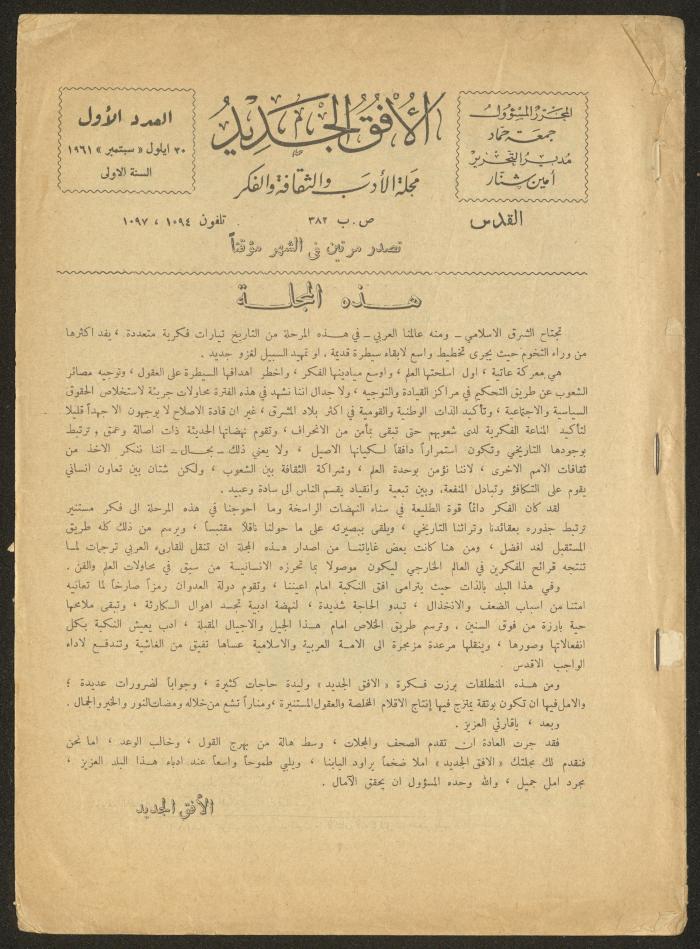 المحرر المسؤول
جمعة حماد
مدير التحرير
أمين شنار
الأفق الجديد
مجلة الأدب والثقافة والفكر
العدد الأول
٣٠ ايلول « سبتمبر » ١٩٦١
السنة الاولى
القدس
ص . ب ٣٨٢
تلفون ١٠٩٤ ، ١٠٩٧
تصدر مرتين في الشهر مؤقتاً
هذه المجلة
تجتاح الشرق الاسلامي ــ ومنه عالمنا العربي ــ في هذه المرحلة من التاريخ تيارات فكرية متعددة ، يفد اكثرها
من وراء التخوم حيث يجري تخطيط واسع لابقاء سيطرة قديمة ، او تمهيد السبيل لغزو جديد .
هي معركة عاتية ، اول اسلحتها العلم ، واوسع ميادينها الفكر ، واخطر اهدافها السيطرة على العقول ، وتوجيه مصائر
الشعوب عن طريق التحكيم في مراكز القيادة والتوجيه ، ولا جدال اننا نشهد في هذه الفترة محاولات جريئة لاستخلاص الحقوق
السياسية والاجتماعية ، وتأكيد الذات الوطنية والقومية في اكثر بلاد المشرق ، غير ان قادة الاصلاح لا يوجهون الا جهداً قليلا
لتأكيد المناعة الفكرية لدى شعوبهم حتى تبقى بمأمن من الانحراف ، وتقوم نهضاتها الحديثة ذات اصالة وعمق , ترتبط
بوجودها التاريخي وتكون استمراراً دافقاً لكيانها الاصيل ، ولا يعني ذلك ــ بحال ــ اننا ننكر الاخذ من
ثقافات الامم الاخرى ، لاننا نؤمن بوحدة العلم ، وشراكة الثقافة بين الشعوب ، ولكن شتان بين تعاون انساني
يقوم على التكافؤ وتبادل المنفعة، وبين تبعية وانقياد يقسم الناس الى سادة وعبيد .
لقد كان الفكر دائماً قوة الطليعة في سناء النهضات الراسخة وما احوجنا في هذه المرحلة الى فكر مستنير
ترتبط جذوره بعقائدنا وتراثنا التاريخي ، ويلقي ببصيرته على ما حولنا ناقلاً مقتبساً ، ويرسم من ذلك كله طريق
المستقبل لغد افضل ، ومن هنا كانت بعض غاياتنا من اصدار هذه المجلة ان تنقل للقارىء العربي ترجمات لما
تنتجه قرائح المفكرين في العالم الخارجي ليكون موصولا بما تحرزه الانسانية من سبق في محاولات العلم والفن .
وفي هذا البلد بالذات حيث يترامى افق النكبة امام اعيننا ، وتقوم دولة العدوان رمزاً صارخاً لما تعانيه
امتنا من اسباب الضعف والانخذال ، تبدو الحاجة شديدة ، لنهضة ادبية تجسد اهوال الكارثة ، وتبقى ملامحها
حية بارزة من فوق السنين ، وترسم طريق الخلاص امام هذا الجيل والاجيال المقبلة ، ادب يعيش النكبة بكل
انفعالاتها وصورها ، وينقلها مرعدة مزمجرة الى الامة العربية والاسلامية عساها تفيق من الغاشية وتندفع لاداء
الواجب الاقدس .
ومن هذه المنطلقات برزت فكرة « الافق الجديد » وليدة حاجات كثيرة ، وجواباً لضرورات عديدة ؛
والامل فيها ان تكون بوتقة يمتزج فيها إنتاج الاقلام المخلصة والعقول المستنيرة ، ومناراً تشع من خلاله ومضات النور والخير والجمال .
وبعد ، ياقارئي العزيز .
فقد جرت العادة ان تقدم الصحف والمجلات ، وسط هالة من بهرج القول ، وخالب الوعد ، اما نحن
فنقدم لك مجلتك « الافق الجديد » املا ضخماً يراود البابنا ، ويلبي طموحاً واسعاً عند ادباء هذا البلد العزيز ،
مجرد امل جميل ، والله وحده المسؤول ان يحقق الآمال .
الأفق الجديد